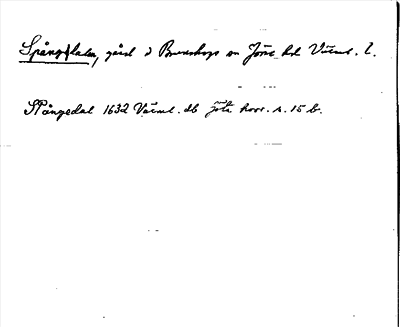 Spångdalen, gård i Brunskogs sn Jösse hd Värml. l.
Spångedal 1632 Värml. db Jöte horr. s. 15 b.